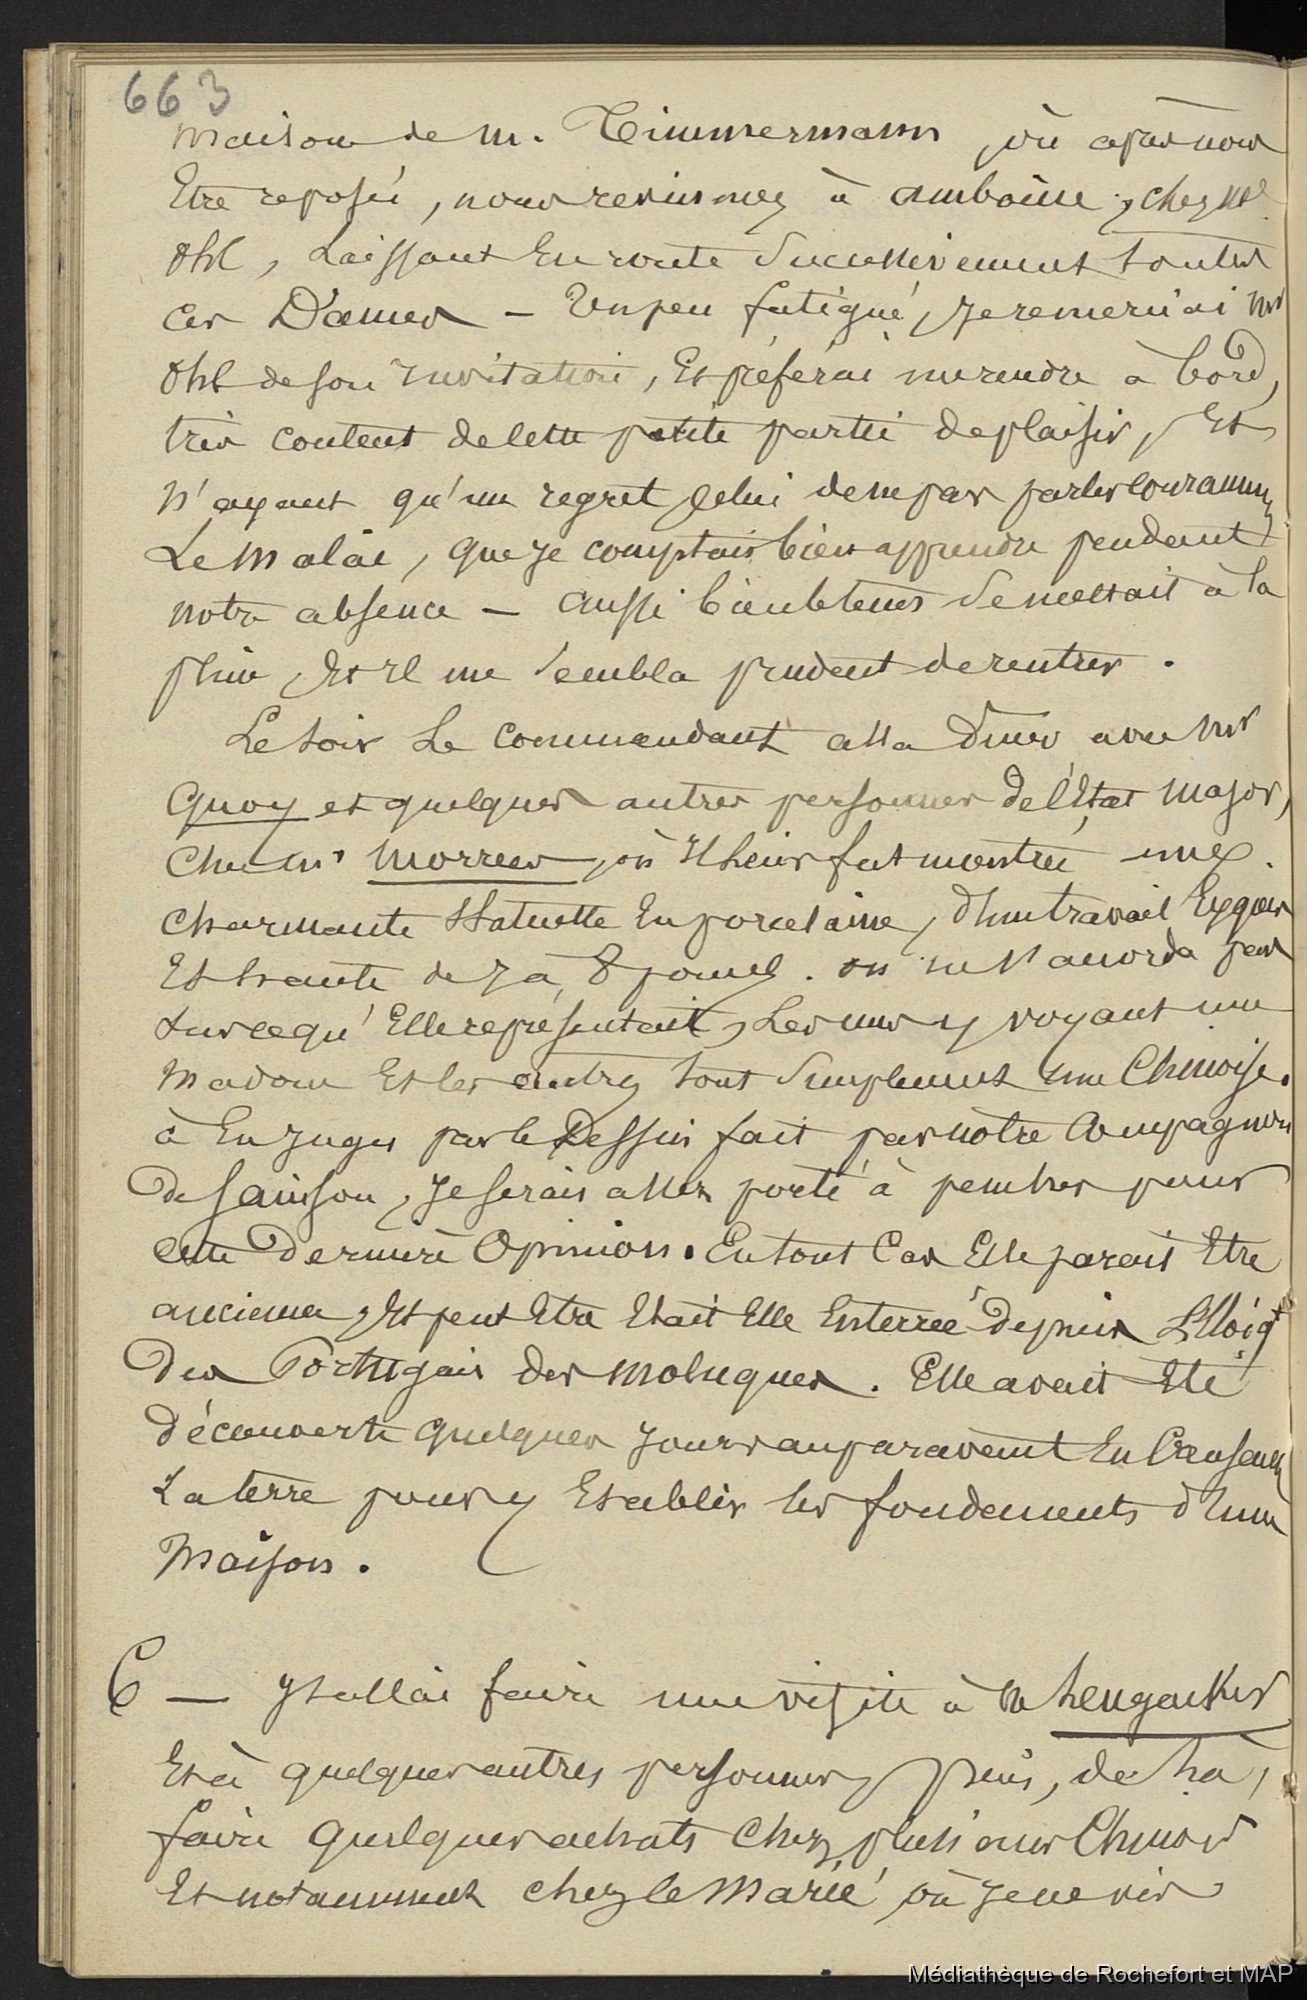 663
maison de M. Timmermann, où après nous
Etre reposés, nous revinmes à amboine, chez Mr
Ohl, Laissant En route Successivement toutes
ces Dames – Un peu fatigué, Je remerciai Mr
Ohl de son Invitation, Et préférai me rendre à bord,
très content de cette petite partie de plaisir, Et
n'ayant qu'un regret celui de ne pas parler couramm
Le Malai, que Je comptais bien apprendre pendant
notre absence – aussi bien le tems Se mettait à la
pluie, Et Il me Sembla prudent de rentrer.
Le soir Le Commandant alla Diner avec Mr
Quoy et quelques autres personnes de l'Etat Major,
chez Mr Morrees, où Il Leur fut montré une
charmante Statuette En porcelaine, d'un travail Exquis
Et haute de 7 à 8 pouces. on ne s'accorda pas
Sur ce qu'Elle représentait, Les uns y voyant une
Madone Et les autres tout Simplement une Chinoise.
à En Juger par le Dessin fait par notre Compagnon
de Sainson, Je serais assez porté à pencher pour
cette Dernière Opinion. En tout Cas Elle parait Etre
ancienne, Et peut Etre Etait Elle Enterrée depuis L'Eloigt
Des Portugais des Moluques. Elle avait Eté
découverte quelques Jours auparavant En Creusant
La terre pour y Etablir les fondements d'une
Maison.
6 – J'allai faire une visite à M Lengacker
Et à quelques autres personnes, puis, de Là,
faire quelques achats chez plusieurs Chinois
Et notamment chez le Marié, où Je ne vis
Médiathèque de Rochefort et MAP